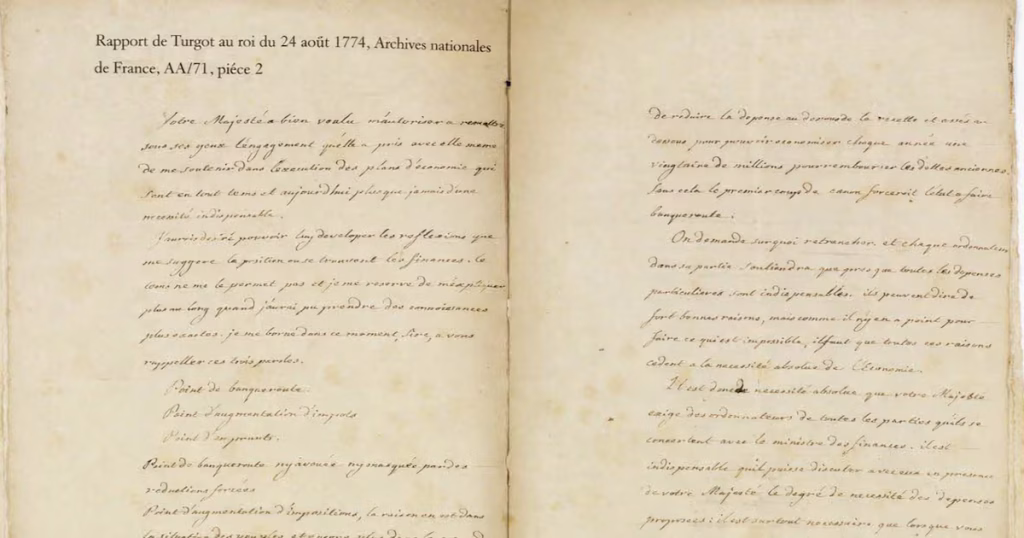 Rapport de Turgot au roi du 24 août 1774, Archives nationales
de France, AA/71, piéce 2
Votre Majesté a bien voulu m'autoriser a remettre
sous ses yeux l'engagement qu'elle a pris avec elle meme
de me soutenir dans l'execution des plans d'économie qui
sont en tout tems et aujourdhui plus que jamais d'une
necessité indispensable.
J'aurois desiré pouvoir luy developer les reflexions que
me suggere la position ou se trouvent les finances. le
tems ne me le permet pas et je me reserve de m'expliquer
plus au long quand j'aurai pu prendre des connoissances
plus exactes. je me borne dans ce moment, Sire, a vous
rappeller ces trois paroles.
Point de banqueroute.
Point d'augmentation d'impots
Point d'emprunts.
Point de banqueroute ny avouée ny masquée par des
reductions forcées
Point d'augmentation d'impositions, la raison en est dans
la situation des peuples et encore plus dans le
de reduire la depense au dessous de la recette et assés au
dessous pour pouvoir economiser chaque année une
vingtaine de millions pour rembourser les dettes anciennes.
Sans cela le premier coup de canon forceroit l'etat a faire
banqueroute.
On demande sur quoi retrancher. et chaque ordonnateur
dans sa partie Soutiendra que presque toutes les depenses
particulieres sont indispensables. ils peuvent dire de
fort bonnes raisons, mais comme il n'y en a point pour
faire ce qui est impossible, il faut que toutes ces raisons
cedent a la necessité absolue de l'Economie.
Il est donc de necessité absolue que votre Majesté
exige des ordonnateurs de toutes les parties qu'ils se
concertent avec le ministre des finances. il est
indispensable qu'il puisse discuter avec eux en presence
de votre Majesté le degré de necessité des depenses
proposées: il est surtout necessaire que lorsque vous